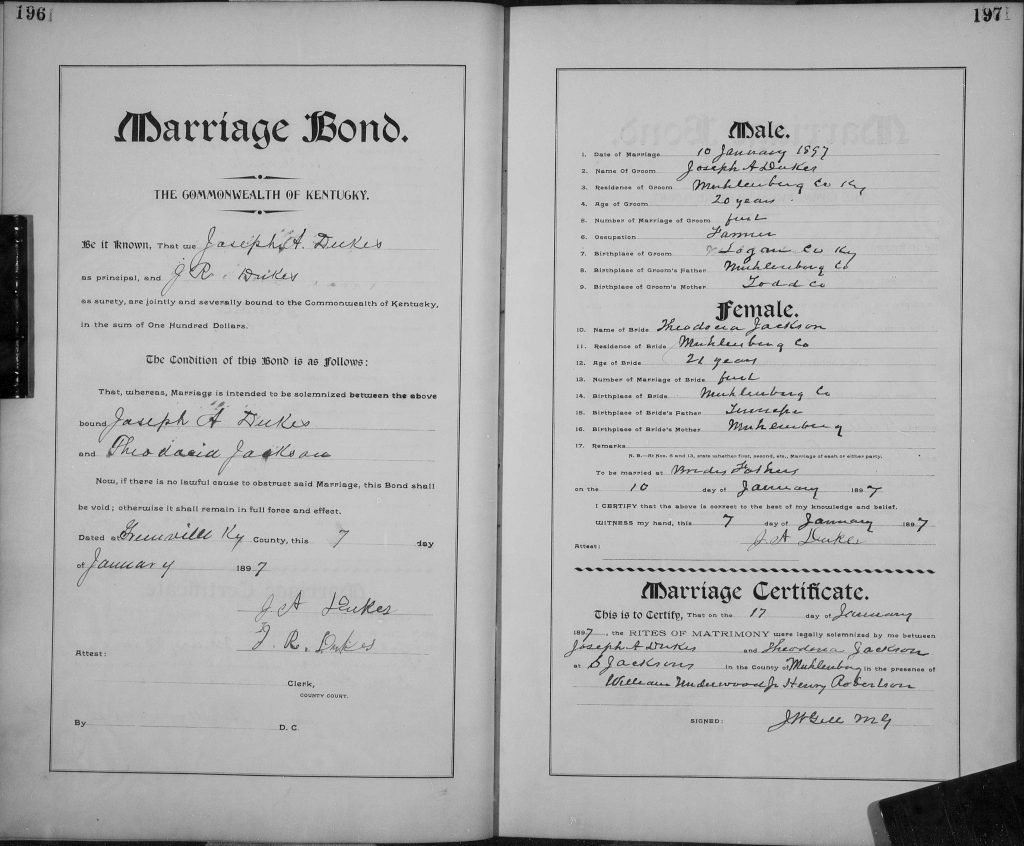 196
Marriage Bond.
THE COMMONWEALTH OF KENTUCKY.
Be it Known, That we Joseph A. Dukes
as principal, and J R Dukes
as surety, are jointly and severally bound to the Commonwealth of Kentucky,
in the sum of One Hundred Dollars.
The Condition of this Bond is as Follows:
That, whereas, Marriage is intended to be solemnized between the above
bound Joseph A Dukes
and Theodocia Jackson
Now, if there is no lawful cause to obstruct said Marriage, this Bond shall
be void; otherwise it shall remain in full force and effect.
Dated at Greenville Ky County, this 7 day
of January 1897
J. A Dukes
J. R. Dukes
Attest:
Clerk,
COUNTY COURT.
By D. C.
197
Male.
1. Date of Marriage 10 January 1897
2. Name Of Groom Joseph A Dukes
3. Residence of Groom Muhlenburg Co Ky
4. Age of Groom 20 years
5. Number of Marriage of Groom first
6. Occupation Farmer
7. Birthplace of Groom Logan Co Ky
8. Birthplace of Groom's Father Muhlenburg Co
9. Birthplace of Groom's Mother Todd Co
Female.
10. Name of Bride Theodocia Jackson
11. Residence of Bride Muhlenburg Co
12. Age of Bride 21 years
13. Number of Marriage of Bride first
14. Birthplace of Bride Muhlenburg Co
15. Birthplace of Bride's Father
16. Birthplace of Bride's Mother Muhlenburg
17. Remarks
N. B.—At Nos. 5 and 13, state whether first, second, etc., Marriage of each or either party.
To be married at Brides Fathers
on the 10 day of January 1897
I CERTIFY that the above is correct to the best of my knowledge and belief.
WITNESS my hand, this 7 day of January 1897
J. A Dukes
Attest:
Marriage Certificate.
This is to Certify, That on the 17 day of January
1897, the RITES OF MATRIMONY were legally solemnized by me between
Joseph A Dukes and Theodocia Jackson
at S Jacksons in the County of Muhlenburg in the presence of
William Underwood Jr Henry Robertson
SIGNED: J W Gill M G